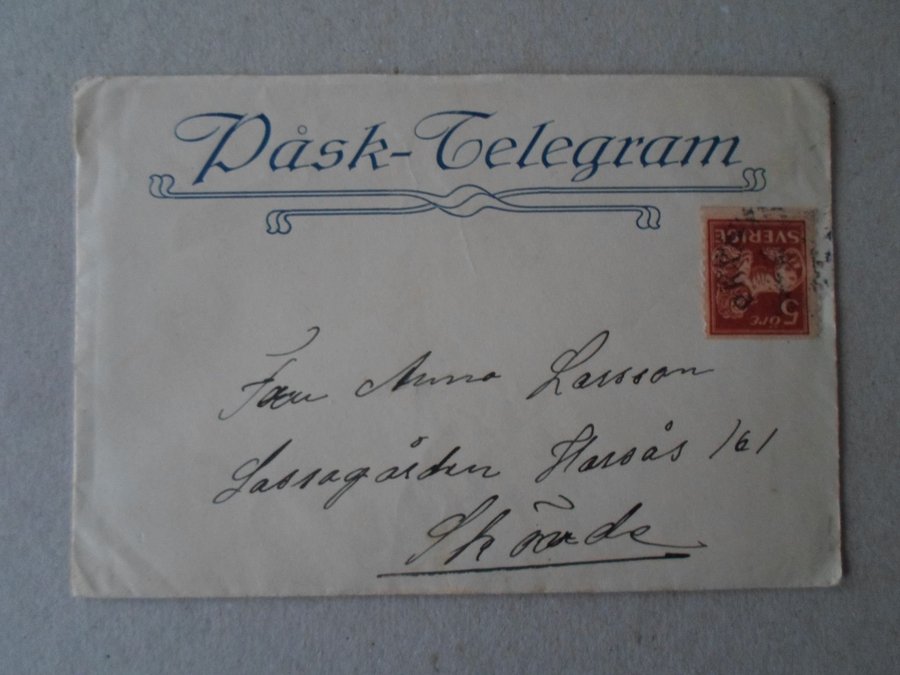 Påsk-Telegram
SVERIGE
5 ÖRE
Fru Anna Larsson
Lassagården Horsås 161
Skövde